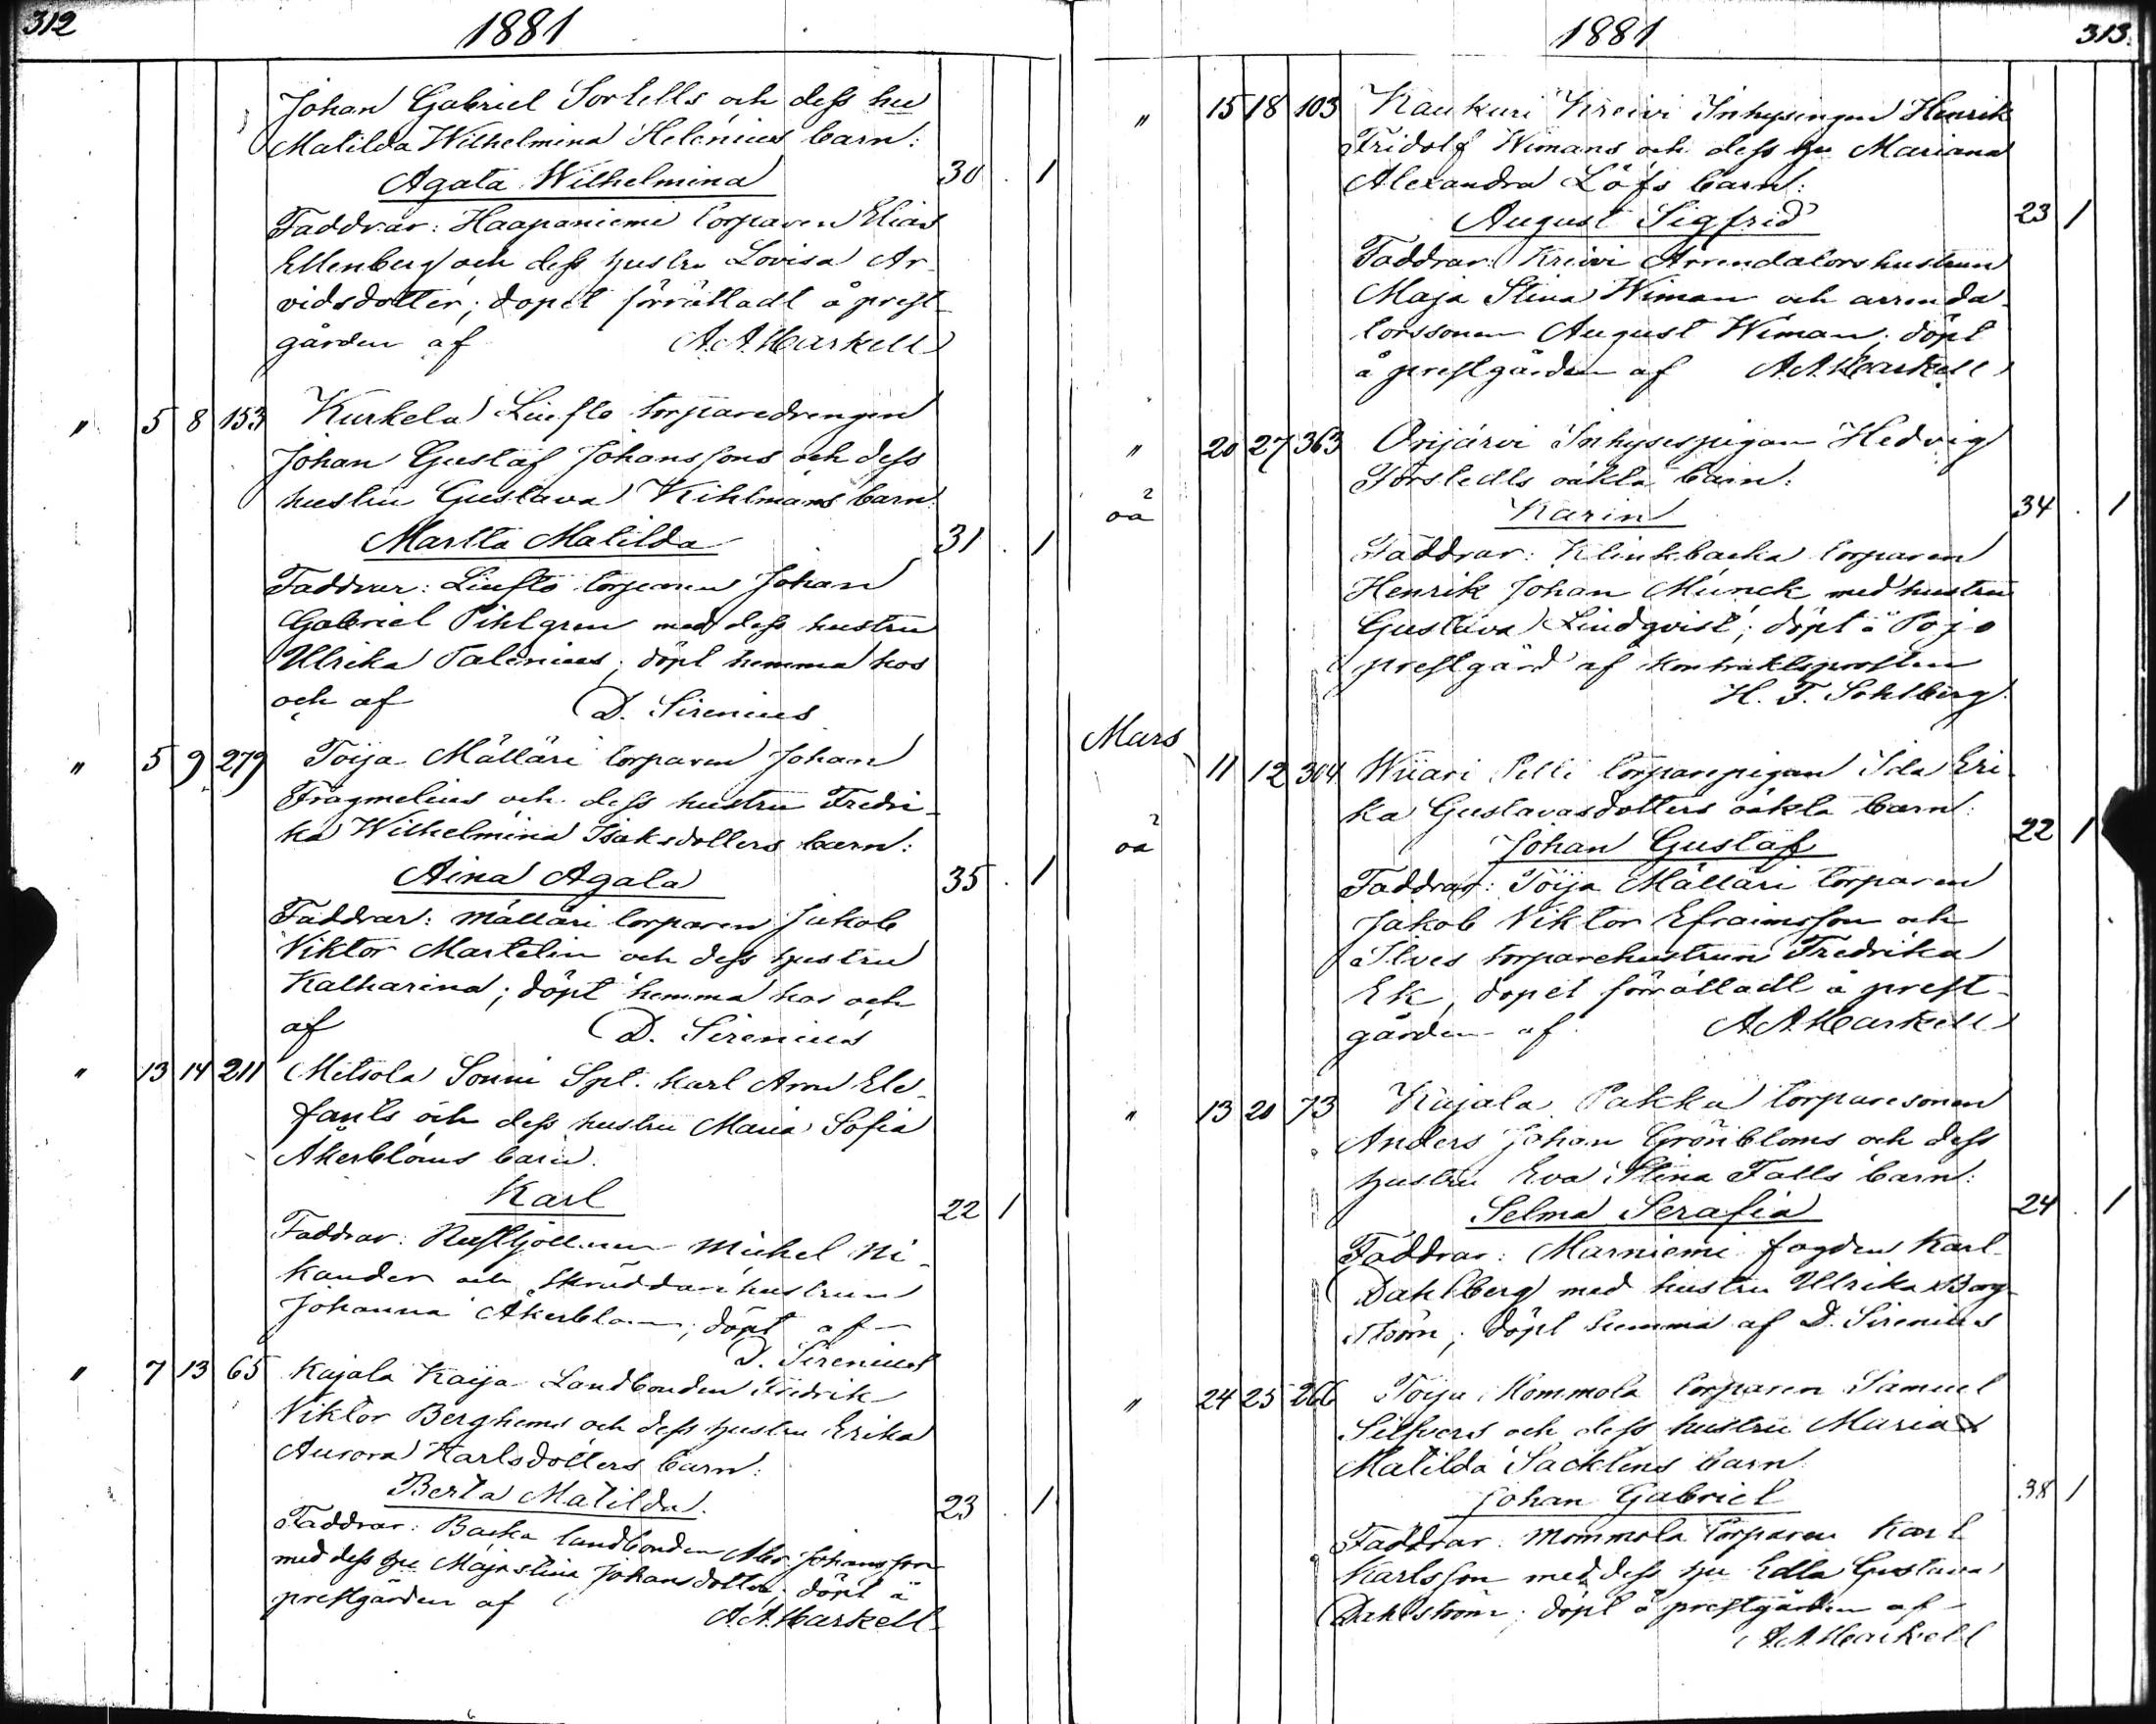 312
1881
Johan Gabriel Sortells och dess hu
Matilda Wilhelmina Helenius barn:
Agata Wilhelmina 30 . 1
Faddrar: Haapaniemi torparen Elias
Ellenberg och dess hustru Lovisa Ar-
vidsdotter; dopet förrättadt å prest-
gården af A.A. Markell
" 5 8 153 Kurkela Liuhto torparedrengen
Johan Gustaf Johanssons och dess
hustru Gustava Kihlmans barn:
Martta Matilda 31 . 1
Faddrar: Liuhto torparen Johan
Gabriel Pihlgren med dess hustru
Ulrika Palenius; döpt hemma hos
och af D. Sirenius
" 5 9 279 Toija Mälläri torparen Johan
Fragmelius och dess hustru Fredri-
ka Wilhelmina Isaksdotters barn:
Aina Agata 35 . 1
Faddrar: Mälläri torparen Jakob
Viktor Martelin och dess hustru
Katharina; döpt hemma hos och
af D. Sirenius
" 13 14 211 Metsola Sonni Spt. Karl Aron Ele-
fants och dess hustru Maria Sofia
Åkerbloms barn.
Karl 22 1
Faddrar: Michel Ni-
kander och skräddarehustrun
Johanna Åkerblom; döpt af
D. Sirenius
" 7 13 65 Kajala Kaija Landbonden Fredrik
Viktor Berghems och dess hustru Erika
Aurora Karlsdotters barn:
Berta Matilda. 23 . 1
Faddrar: Backa landbonden Abr. Johansson
med dess hu Maja Stina Johansdotter; döpt å
prestgården af A.A. Markell
1881
313.
" 15 18 103 Kaukuri Kreivi Inhysingen Henrik
Fridolf Wimans och dess hu Mariana
Alexandra Löfs barn:
August Sigfrid 23 1
Faddrar: Kreivi Arrendatorshustrun
Maja Stina Wiman och arrenda-
torssonen August Wiman; döpt
å prestgården af A.A. Markell
" 20 27 363 Orijärvi Inhysespigan Hedvig
Forstedts oäkta barn:
oä
Karin 34 . 1
Faddrar: Klinkbacka torparen
Henrik Johan Munck med hustru
Gustava Lindqvist; döpt å Pojo
prestgård af kontraktsprosten
H. F. Sohlberg.
Mars
11 12 304 Wiiari Pelli torparepigan Ida Eri-
ka Gustavasdotters oäkta barn:
oä
Johan Gustaf 22 1
Faddrar: Toija Mälläri torparen
Jakob Viktor Efraimsson och
Ilves torparehustrun Fredrika
Ek, dopet förrättadt å prest-
gården af A.A. Markell
" 13 20 73 Kajala Pakka torparesonen
Anders Johan Grönbloms och dess
hustru Eva Stina Falls barn:
Selma Serafia 24 . 1
Faddrar: Marniemi fogden Karl
Dahlberg med hustru Ulrika Borg-
ström; döpt hemma af D. Sirenius
" 24 25 266 Toija Mommola torparen Samuel
Silfvers och dess hustru Maria
Matilda Sacklens barn
Johan Gabriel 38 1
Faddrar: Mommola torparen Karl
Karlsson med dess hu Edla Gustava
Dahlström; döpt å prestgården af
A.A. Markell